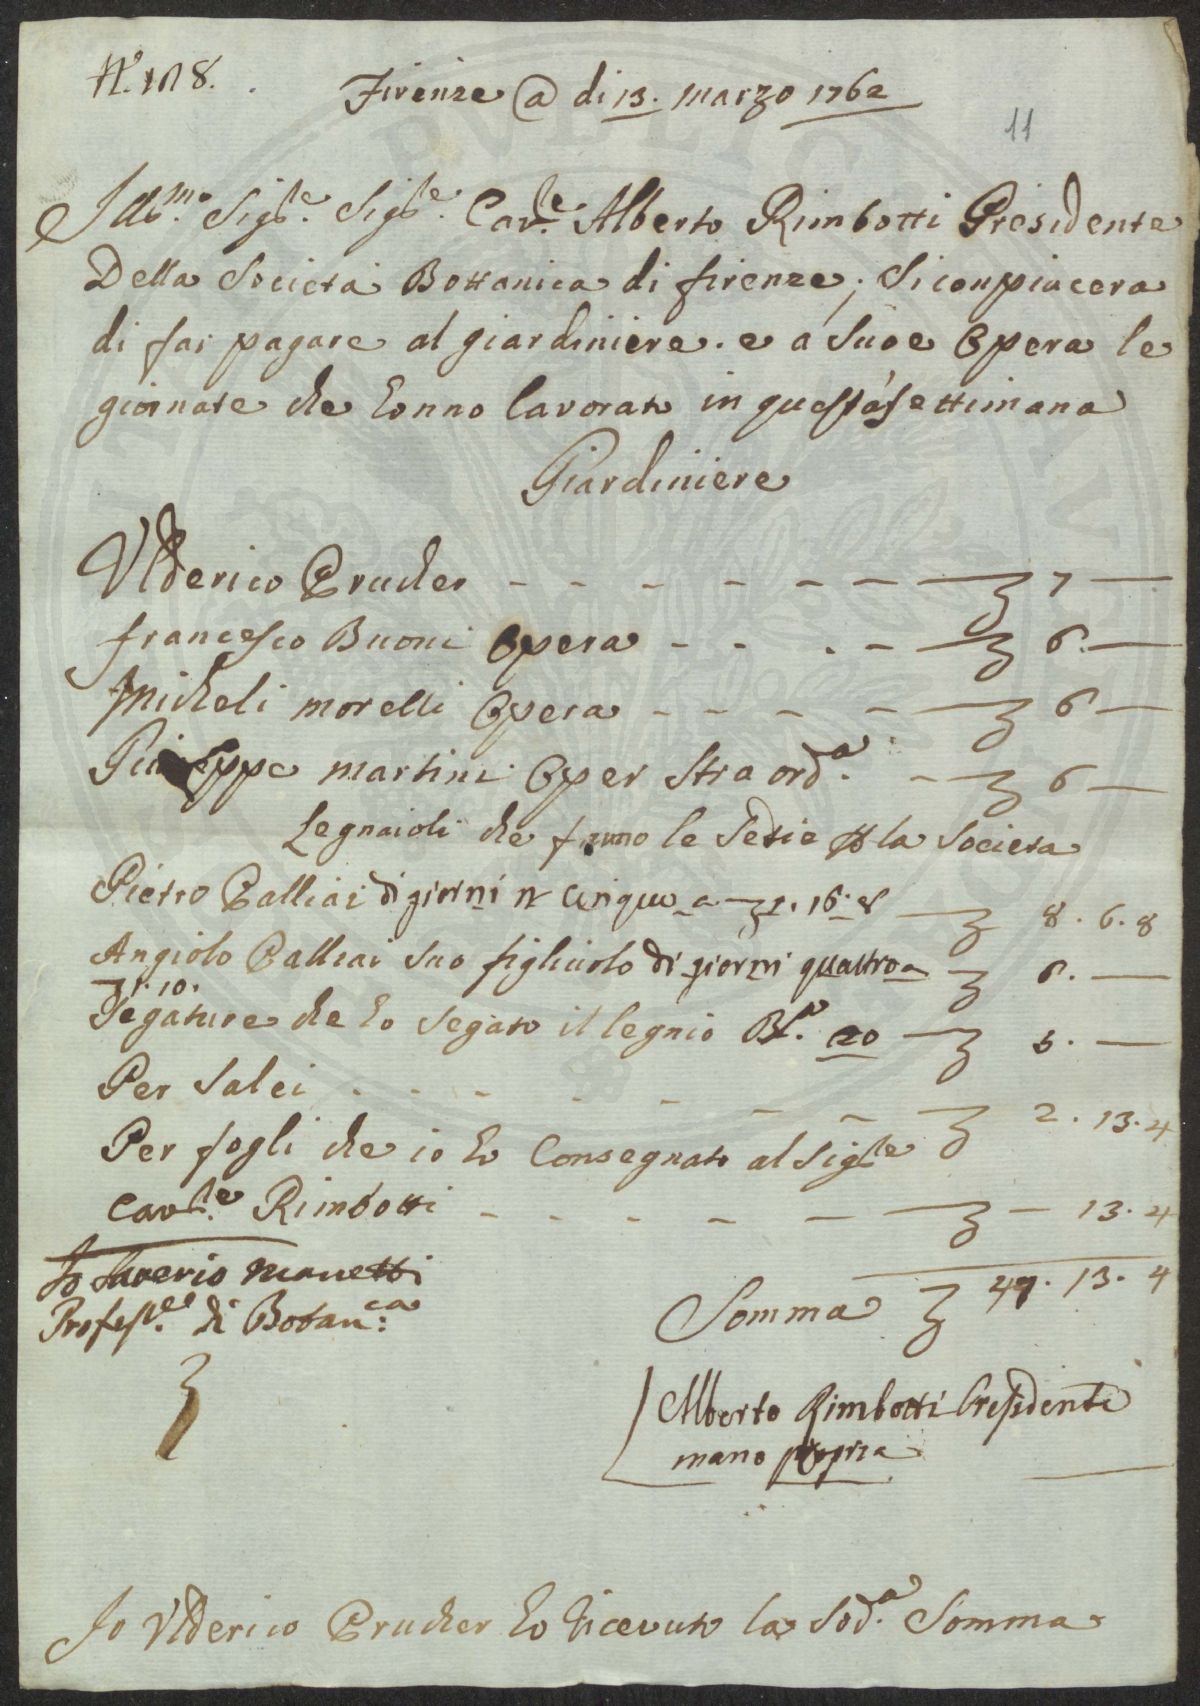 Nº. 118.
Firenze @ di 13. Marzo 1762
11
Illmo. Sigre. Sigre. Cavre. Alberto Rimbotti Presidente
Della Società Bottanica di firenze, Si conpiacera
di far pagare al giardiniere. e a Suoe Opera le
giornate che Ɛonno lavorato in questa settimana
Giardiniere
Ulderico Prucher - - - - - - 7 —
francesco Buoni Opera - - . - 6. —
Micheli morelli Opera - - - - 6 —
Giuseppe martini Oper Straorda. - 6 —
Legnaioli che fanno le Sedie p la Societa
Pietro Galliai di giorni n cinque a 1. 16. 8 8. 6. 8
Angiolo Galliai suo figliuolo di giorni quattro a 6. —
1. 10.
Segature che ho segato il legnio Bra. 20 5. —
Per Salci - - - - - - - 2. 13. 4
Per fogli che io ho Consegnato al Sigre
Cavre. Rimbotti - - - - - — 13. 4
Io Saverio Manetti
Profess.re di Botan:ca
Somma 47. 13. 4
Alberto Rimbotti Presidente
mano propria
Io Ulderico Prucher ho ricevuto la Sod.a Somma